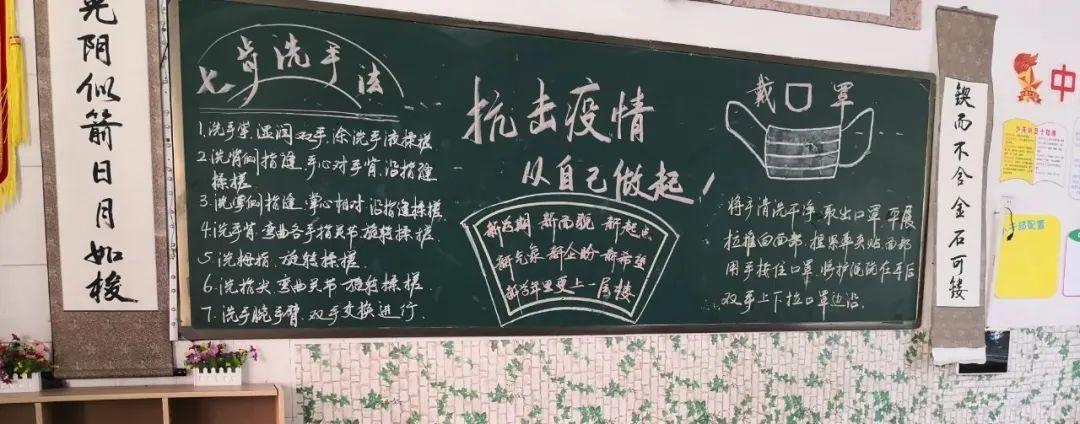 光阴似箭日月如梭
七步洗手法
1.洗手掌,湿润双手,涂洗手液揉搓
2.洗背侧指缝,手心对手背沿指缝
揉搓
3.洗掌侧指缝,掌心相对沿指缝揉搓
4.洗手背,弯曲各手指关节旋转揉搓
5.洗拇指,旋转揉搓
6.洗指尖弯曲关节旋转揉搓
7.洗手腕手臂,双手交换进行
抗击疫情
从自己做起!
新学期 新面貌 新起点
新气象 新企盼 新希望
新学年里更上一层楼
戴口罩
将手清洗干净 取出口罩 平展
拉推向面部
用手按住口罩 将护 在耳后
双手上下拉口罩边沿
锲而不舍金石可镂
中